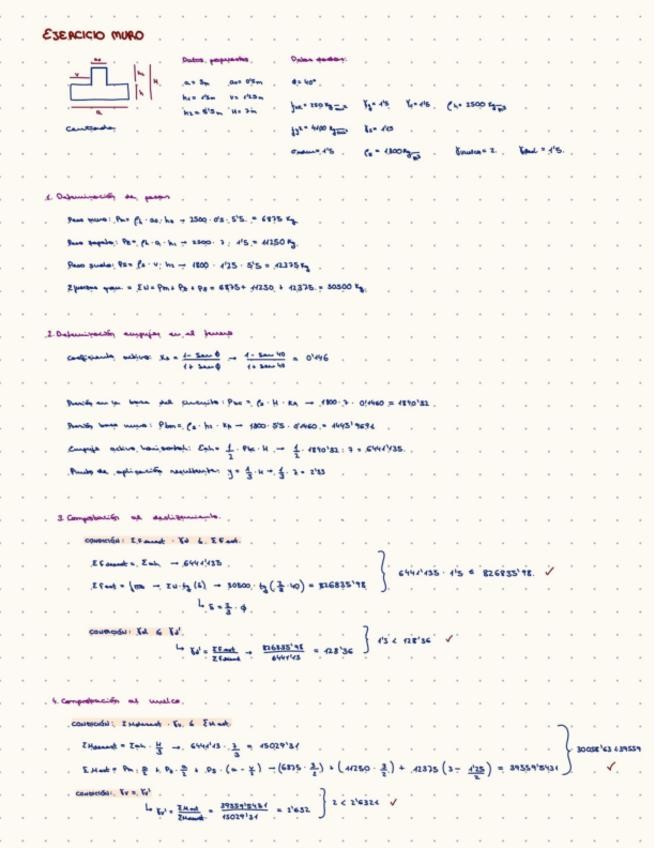 EJERCICIO MURO
Datos propuestos
Datos dados:
a = 3m a0 = 0'5m
h1 = 1'5m v = 1'25m
h2 = 5'5m H = 7m
ϕ = 40°
γs = 1'15
σadm = 1'5
Cimentación
1. Determinación de pesos
Peso muro: Pm = ρh · a0 · h2 → 2500 · 0'5 · 5'5 = 6875 Kg
Peso zapata: Pz = ρh · a · h1 → 2500 · 3 · 1'5 = 11250 Kg
Peso suelo: Ps = ρs · v · h2 → 1800 · 1'25 · 5'5 = 12375 Kg
= ΣW = Pm + Pz + Ps = 6875 + 11250 + 12375 = 30500 Kg
2. Determinación empujes en el terreno
Coeficiente activo: Ka = 1 - sen ϕ / 1 + sen ϕ → 1 - sen 40 / 1 + sen 40 = 0'146
Presión en la base del cimiento: Pbc = ρs · H · KA → 1800 · 7 · 0'1460 = 1840'32
Presión base muro: Pbm = ρs · h2 · KA → 1800 · 5'5 · 0'1460 =
Empuje activo horizontal: Eah = 1/2 · Pbc · H → 1/2 · 1840'32 · 7 = 6441'135
Punto de aplicación resultante: y = 1/3 · H → 1/3 · 7 = 2'33
3. Comprobación al deslizamiento
CONDICIÓN: ΣFdesest · γd ≤ ΣFest
ΣFdesest = Eah → 6441'135
ΣFest = → ΣW · tg(δ) → 30500 · tg(2/3 · 40) = 826835'98
↳ δ = 2/3 · ϕ
6441'135 · 1'5 ≤ 826835'98 ✓
CONDICIÓN: γd ≤ γd'
↳ γd' = ΣFest / ΣFdesest → 826835'98 / 6441'13 = 128'36
1'5 < 128'36 ✓
4. Comprobación al vuelco
CONDICIÓN: ΣMdesest · γv ≤ ΣMest
ΣMdesest = Eah · H/3 → 6441'13 · 7/3 = 15029'31
ΣMest = Pm · a/2 + Pz · a/2 + Ps · (a - v/2) → (6875 · 3/2) + (11250 · 3/2) + 12375 (3 - 1'25/2) = 39559'5431
30058'63 ≤ 39559 ✓
CONDICIÓN: γv = γv'
↳ γv' = ΣMest / ΣMdesest = 39559'5431 / 15029'31 = 2'632
2 < 2'6321 ✓